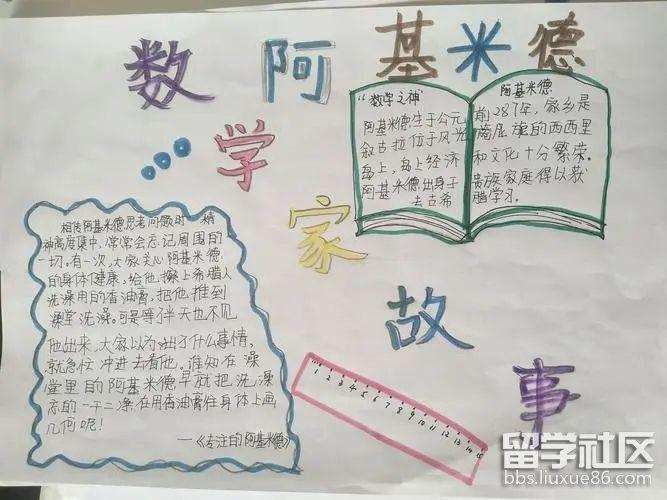 数学家故事
阿基米德
"数学之神"
阿基米德生于公元
叙古拉位于风光
岛上，岛上经济
阿基米德出身于
去古希
阿基米德
前287年，家乡是
旖旎的西西里
和文化十分繁荣。
贵族家庭得以获
腊学习。
相传阿基米德思考问题时，精
神高度集中，常常会忘记周围的
一切，有一次，大家关心阿基米德
的身体健康，给他擦上希腊人
洗澡用的香油膏，把他推到
澡堂洗澡。可是等了半天也不见
他出来，大家以为出了什么事情，
就急忙冲进去看他。谁知在澡
堂里的阿基米德早就把洗澡
忘的一干二净，在用香油膏往身体上画
几何呢！
——《专注的阿基米德》
1 2 3 4 5 6 7 8 9 10 11 12 13 14 15
留学社区
bbs.liuxue86.com